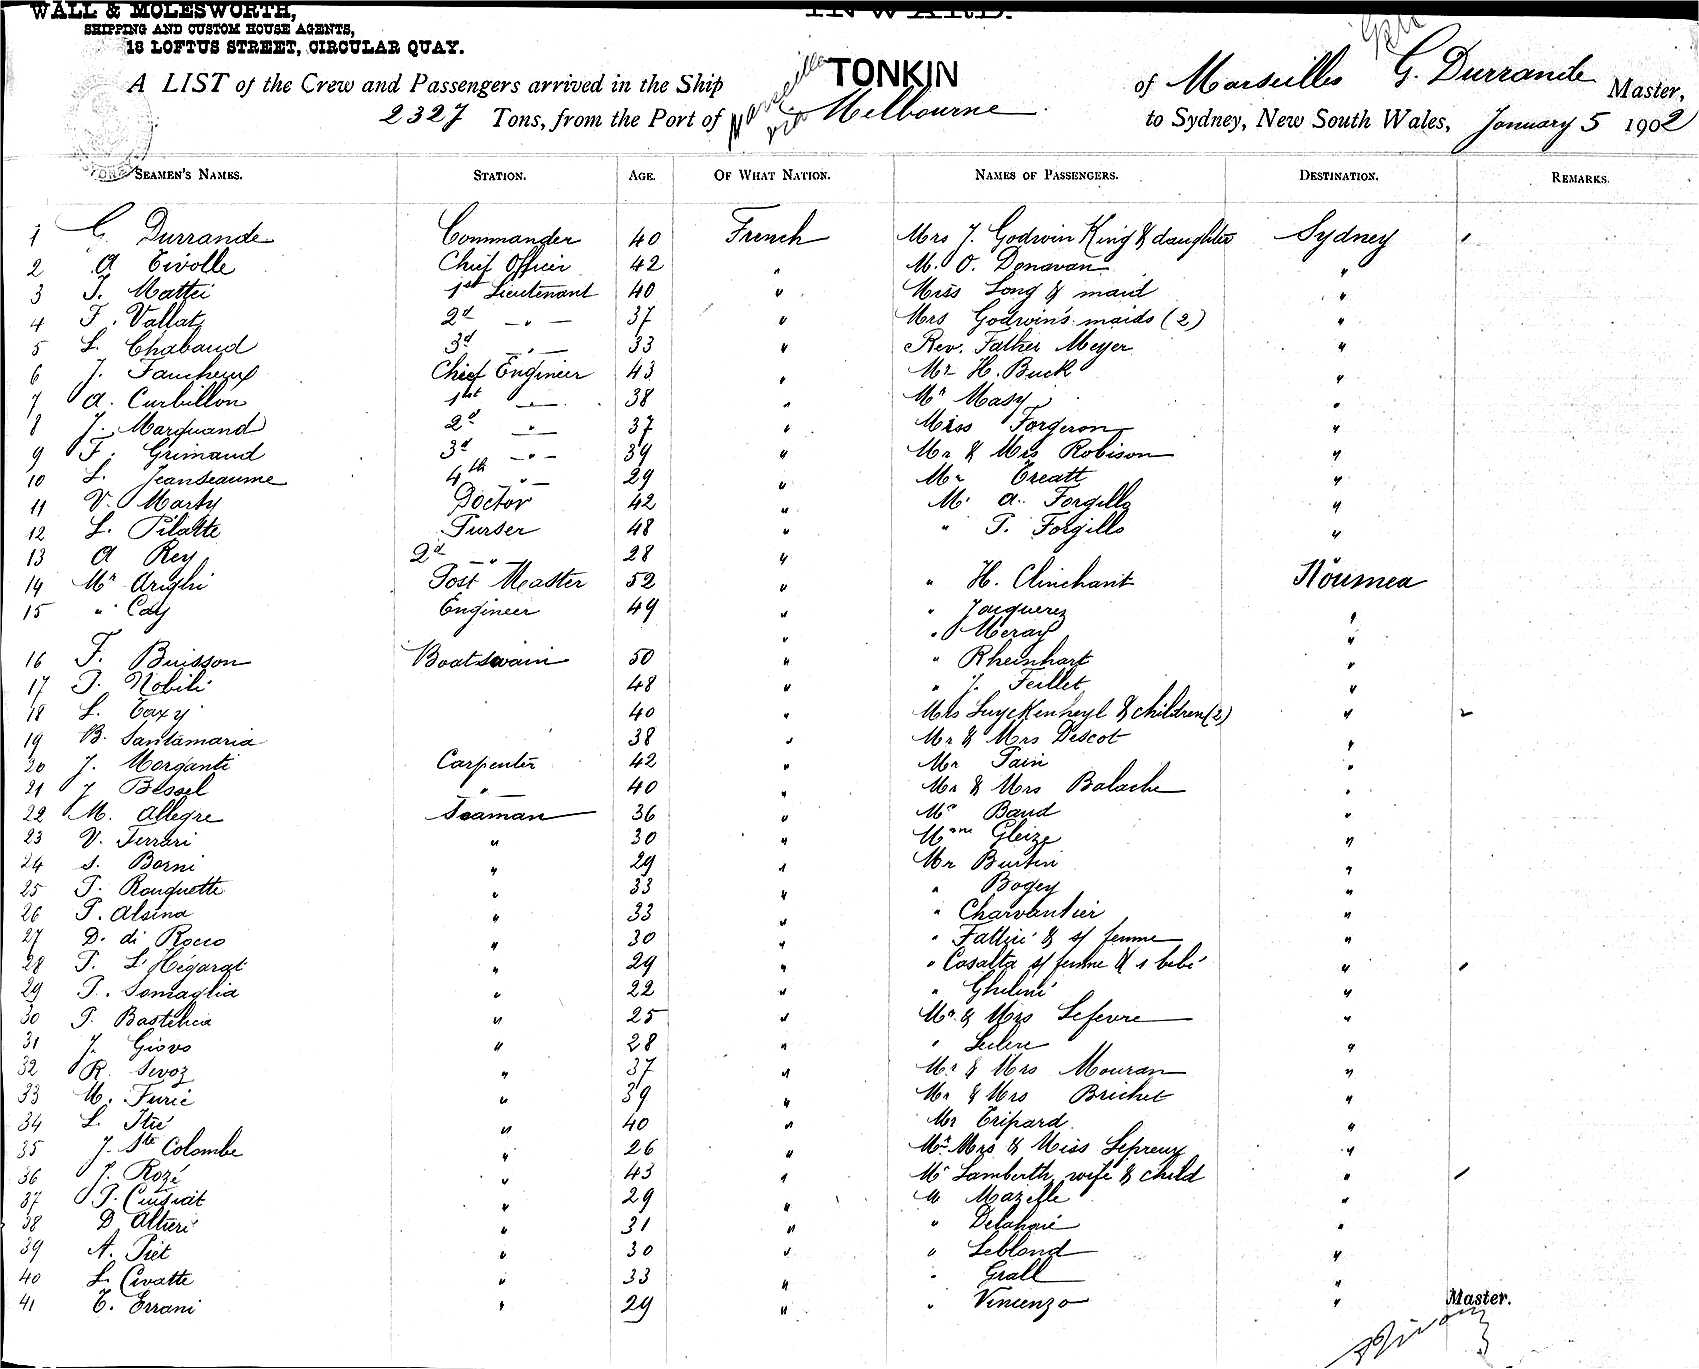 INWARD.
WALL & MOLESWORTH,
SHIPPING AND CUSTOM HOUSE AGENTS,
18 LOFTUS STREET, CIRCULAR QUAY.
A LIST of the Crew and Passengers arrived in the Ship TONKIN of Marseilles G. Durrande Master,
2327 Tons, from the Port of Marseilles via Melbourne to Sydney, New South Wales, January 5 1902
SEAMEN'S NAMES. STATION. AGE. OF WHAT NATION. NAMES OF PASSENGERS. DESTINATION. REMARKS.
1 G Durrande Commander 40 French Mrs J. Godwin King & daughter Sydney
2 A Tivolle Chief Officer 42 " M. O. Donavan "
3 J. Mattei 1st Lieutenant 40 " Miss Long & maid "
4 F. Vallat 2d — " — 37 " Mrs Godwin's maids (2) "
5 L. Chabaud 3d — " — 33 " Rev. Father Meyer "
6 J. Faucheux Chief Engineer 43 " Mr H. Buck "
7 A. Curbillon 1st — 38 " Mr Masy "
8 J. Marquand 2d — " 37 " Miss Forgeron "
9 F. Grimaud 3d — " — 39 " Mr & Mrs Robison "
10 L. Jeanseaume 4th " — 29 " Mr Treatt "
11 V. Marty Doctor 42 " M. A. Forgillo "
12 L. Pilatte Purser 48 " " P. Forgillo "
13 A Rey 2d — " — 28 "
14 Mr Arighi Post Master 52 " " H. Clinchant Noumea
15 " Cay Engineer 49 " " Jacquerez "
" " Meray "
16 F. Buisson Boatswain 50 " " Rheinhart "
17 P. Nobili 48 " " J. Feillet "
18 L. Taxy 40 " Mrs Luyckenheyl & children (2) "
19 B. Santamaria 38 " Mr & Mrs Descot "
20 J. Morganti Carpenter 42 " Mr Pain "
21 J Bessel " 40 " Mr & Mrs Balache "
22 M. Allegre Seaman 36 " Mr Baud "
23 V. Ferrari " 30 " Mme Gleize "
24 S. Borni " 29 " Mr Burtin "
25 P. Rouquette " 33 " " Bogey "
26 P. Alsina " 33 " " Charvantier "
27 D. di Rocco " 30 " " Fattini & s/ femme "
28 P. L'Hégarat " 29 " " Casalta s/ femme & 1 bébé "
29 P. Somaglia " 22 " " Ghilini "
30 P. Bastelica " 25 " Mr & Mrs Lefevre "
31 J. Giovo " 28 " " Leclere "
32 R. Sivoz " 37 " Mr & Mrs Mouran "
33 M. Furic " 39 " Mr & Mrs Brichet "
34 L. Itié " 40 " Mr Tripard "
35 J. Ste Colombe " 26 " Mr Mrs & Miss Lepreux "
36 J. Rozé " 43 " Mr Lamberth wife & child "
37 P. " 29 " M Mazelle "
38 D Altieri " 31 " " Delahaie "
39 A. Piet " 30 " " Leblond "
40 L. Civatte " 33 " " Grall "
41 T. Errani " 29 " " Vincenzo "
Master.